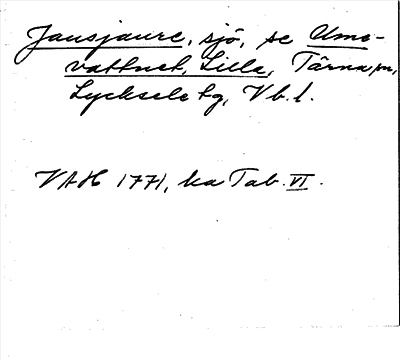 Jansjaure, sjö, se Ume-
vattnet, Lilla, Tärna sn,
Lycksele tg, Vb. l.
VAH 1771, ka Tab. VI.